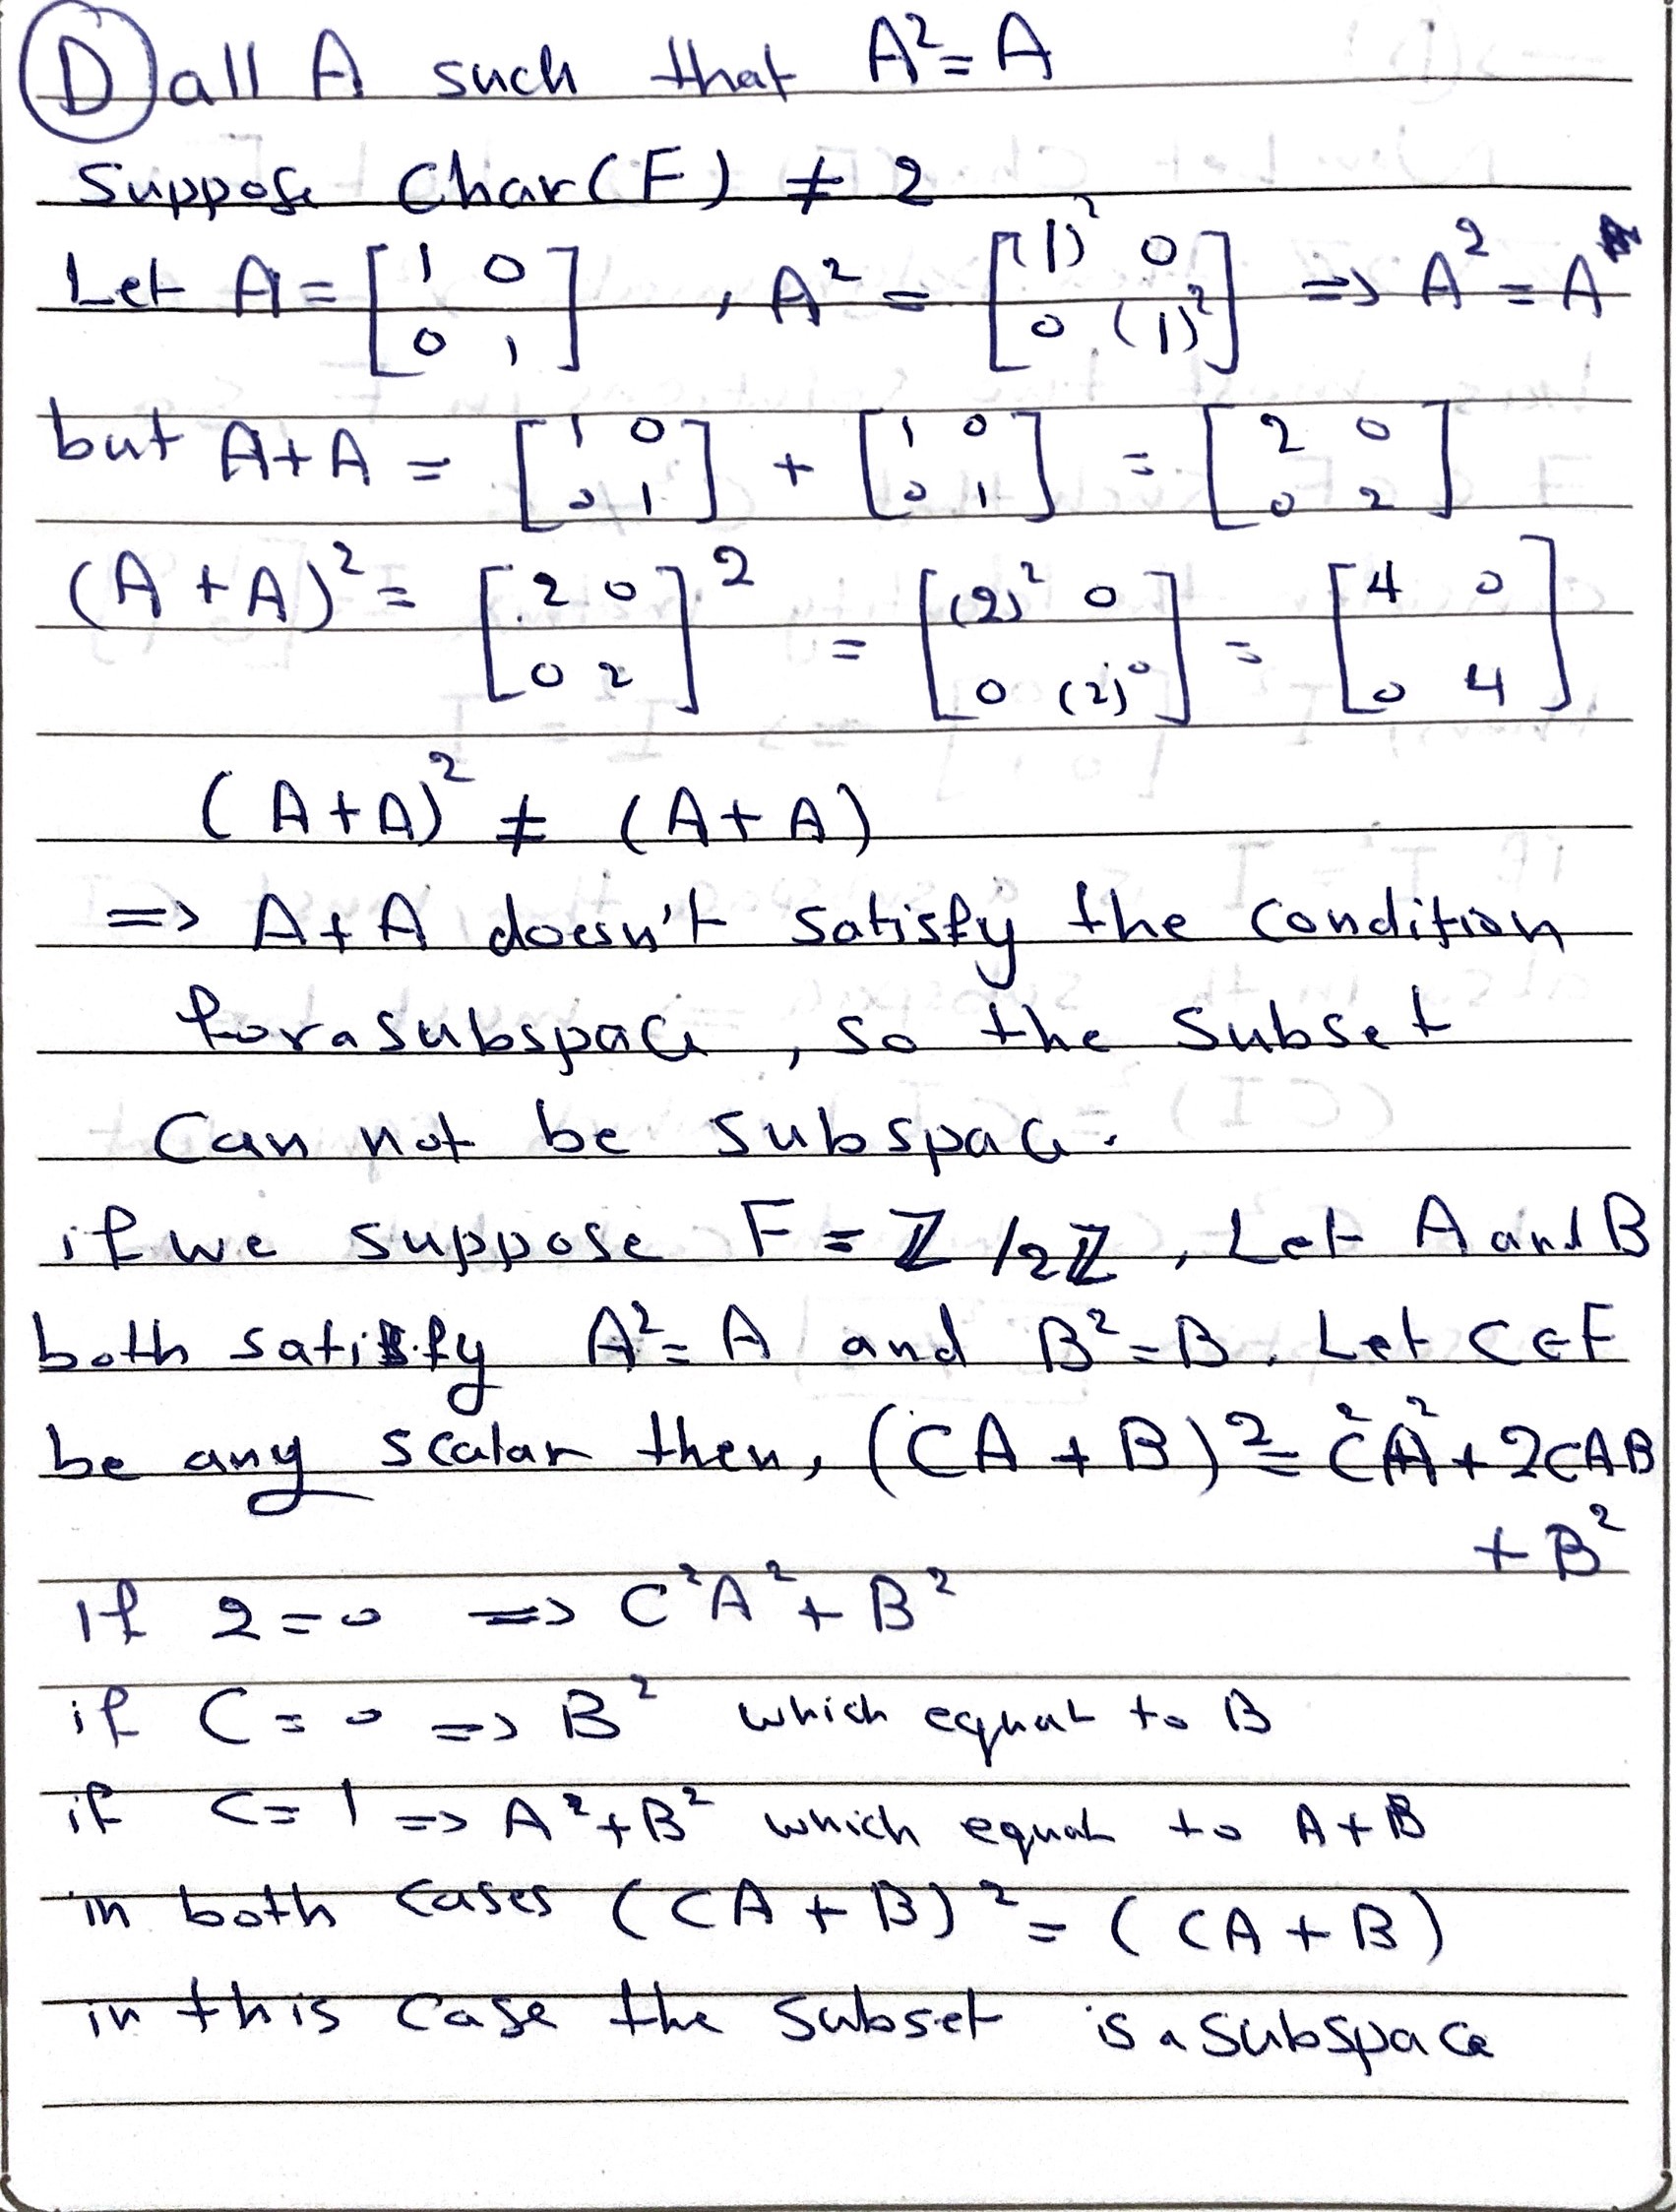 (D) all A such that A² = A
Suppose Char(F) ≠ 2
Let A = [1 0; 0 1] , A² = [(1)² 0; 0 (1)²] => A² = A
but A+A = [1 0; 0 1] + [1 0; 0 1] = [2 0; 0 2]
(A + A)² = [2 0; 0 2]² = [(2)² 0; 0 (2)⁰] = [4 0; 0 4]
(A+A)² ≠ (A+A)
=> A+A doesn't satisfy the condition
for a subspace, so the subset
Can not be subspace.
if we suppose F = ℤ/2ℤ, Let A and B
both satisfy A² = A and B² = B. Let C ∈ F
be any scalar then, (CA + B)² = C²A² + 2CAB
+ B²
If 2 = 0 => C²A² + B²
if C = 0 => B² which equal to B
if C = 1 => A² + B² which equal to A + B
in both cases (CA + B)² = (CA + B)
in this case the subset is a subspace